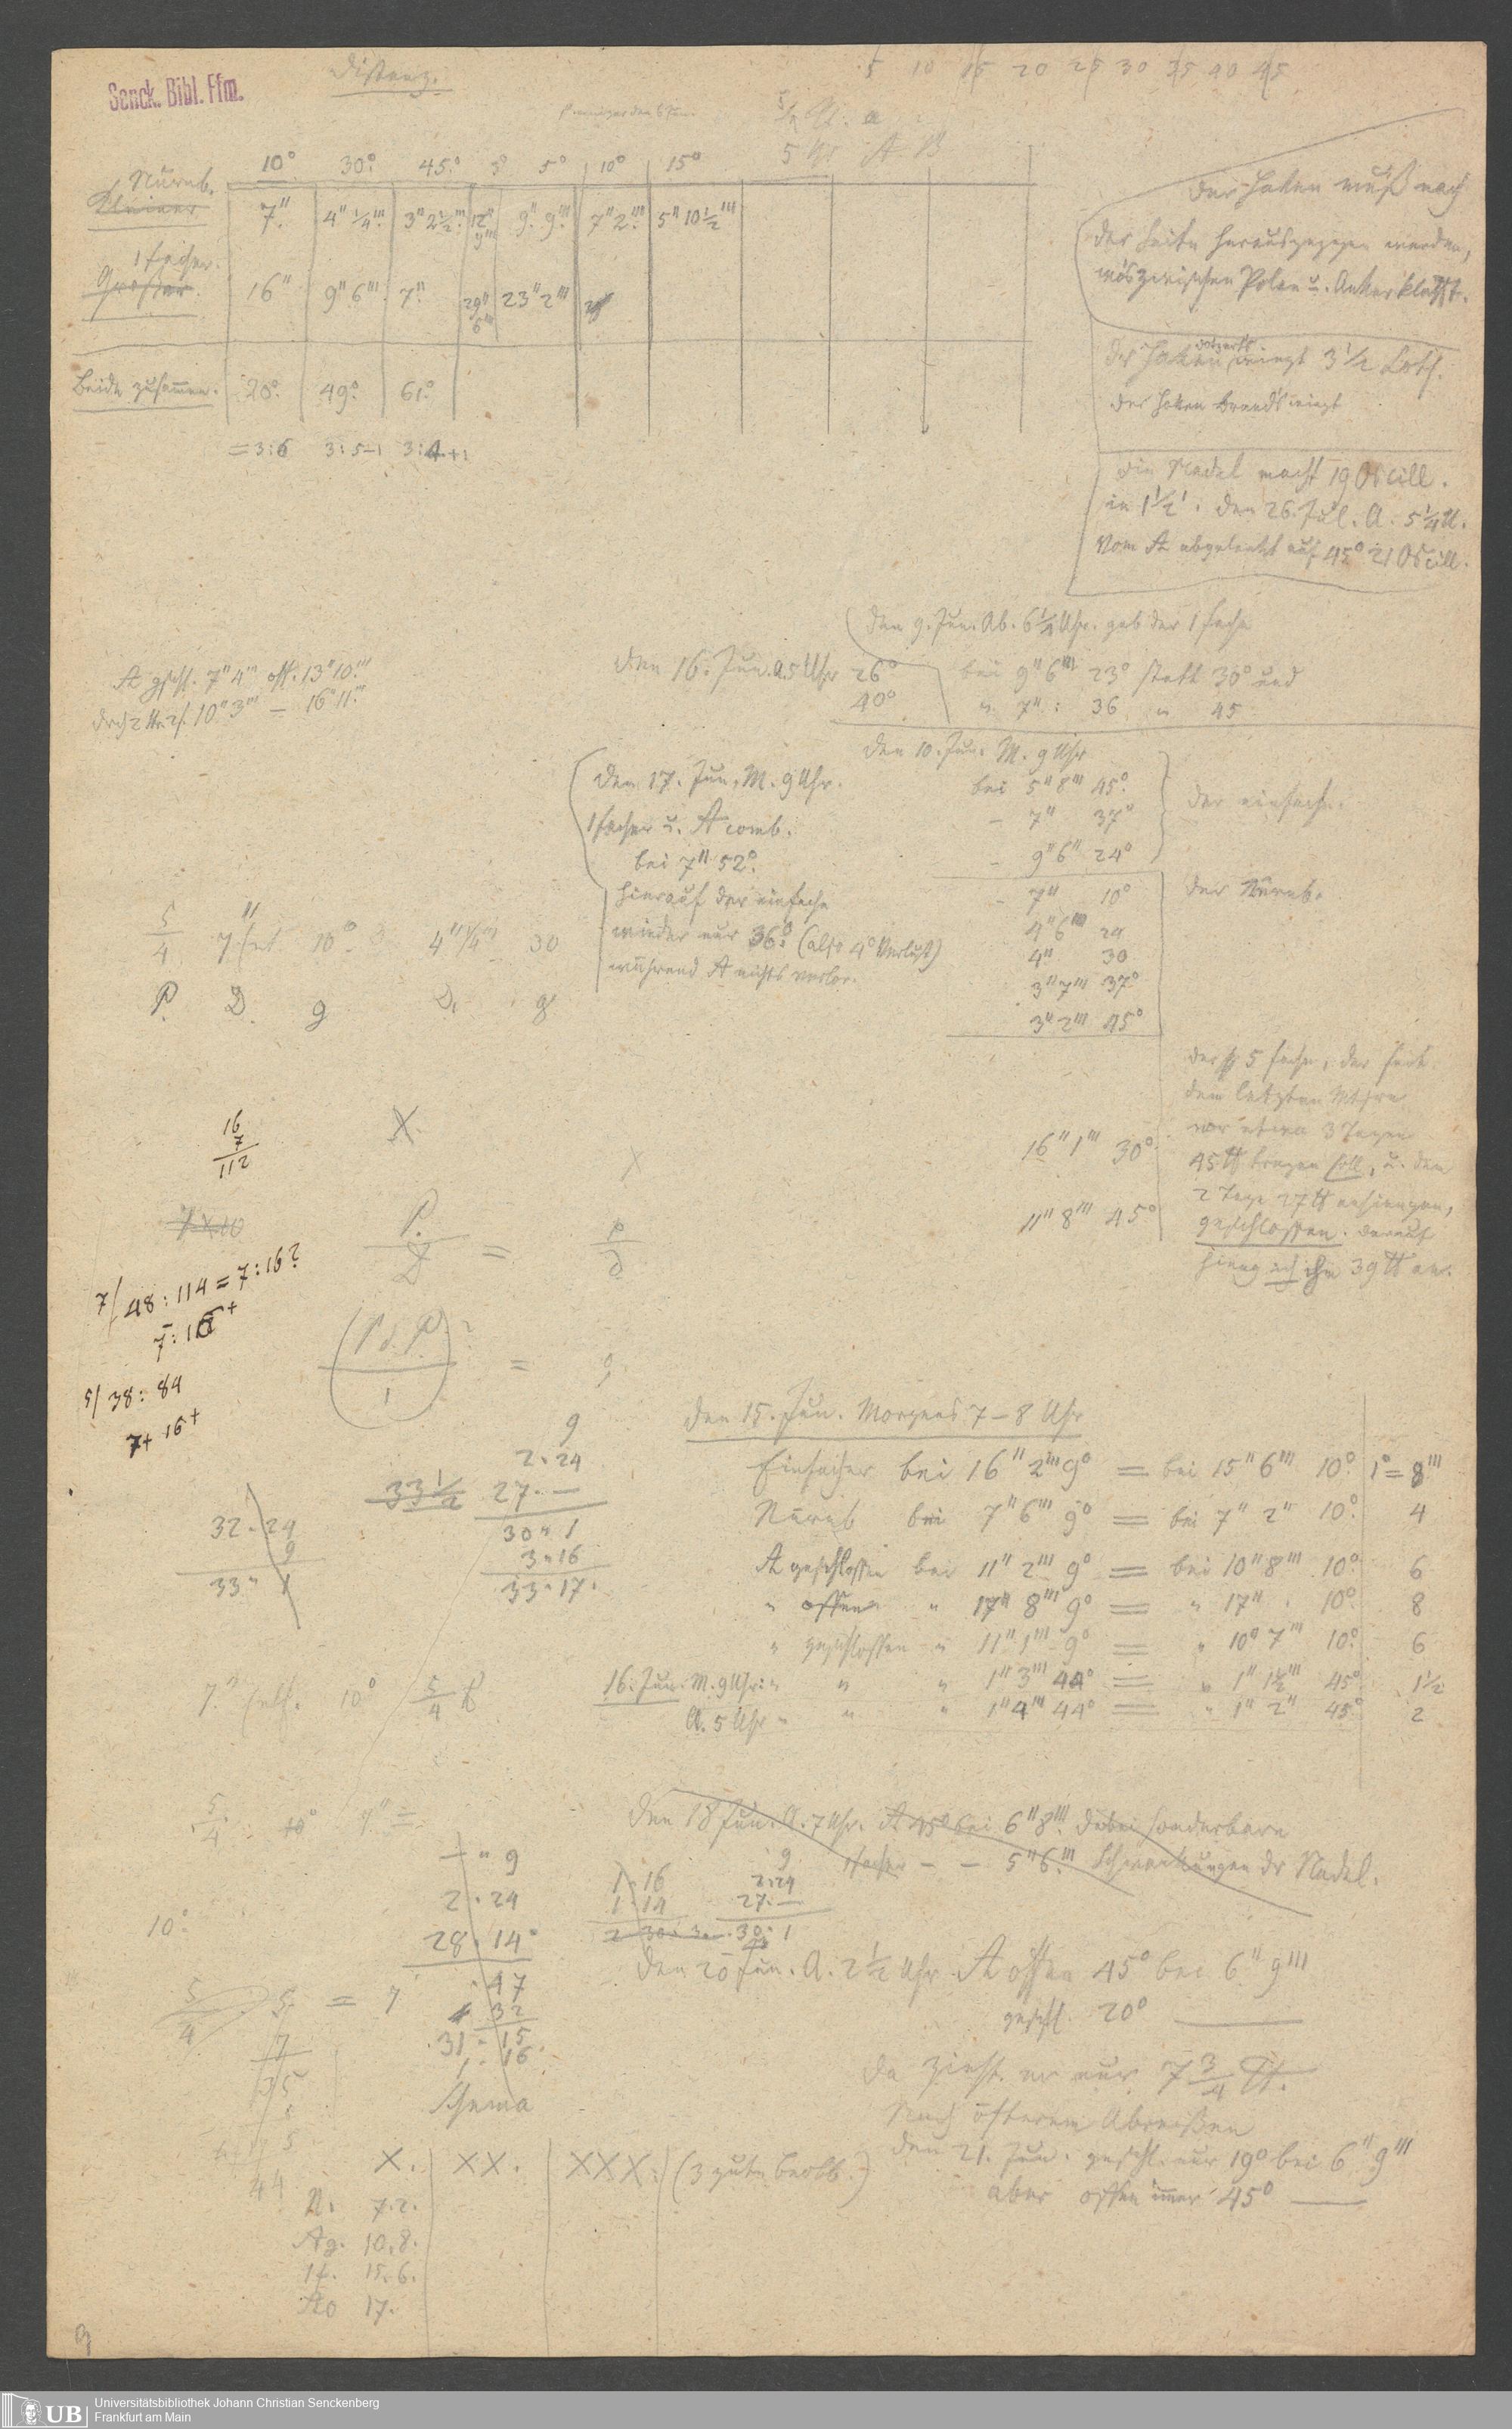 Senck. Bibl. Ffm.
Distanz.
5 10 15 20 25 30 35 40 45
10° 30° 45° 3° 5° 10° 15°
Nürnb.
Kleiner 7" 4" 1/4"' 3" 2 1/2"' 12" 9"' 9" 9"' 7" 2"' 5" 10 1/2"'
1 facher.
Großer 16" 9" 6"' 7" 29" 6"' 23" 2"'
Beide zusammen. 28° 49° 61°
=3:6 3:5-1 3:4+1
Der Haken muß nach
der Seite herausgezogen werden,
wo's zwischen Polen u. Anker klafft.
Der Haken wiegt 3 1/2 Loth.
Der Haken Brands wiegt
Die Nadel macht 19 Oscill.
in 1 1/2'. den 26. Jul. A. 5 1/4 U.
Vom A abgelenkt auf 45° 21 Oscill.
Den 9. Jun. Ab. 6 1/2 Uhr. gab der 1 fache
bei 9" 6"' 23° statt 30° und
" 7": 36 " 45
Den 16. Jun. A. 5 Uhr 26°
40°
A gschl. 7" 4"' off. 13" 10"'
10" 3"' — 16" 11"'
Den 10. Jun. M. 9 Uhr
bei 5" 8"' 45°
- 7" 37"
- 9" 6" 24°
der einfache.
Den 17. Jun. M. 9 Uhr.
1 facher u. A comb.
bei 7" 52°
hierauf der einfache
wieder nur 36° (also 4° Verlust)
während A nichts verlor.
- 7" 10°
4" 6"' 24
4" 30
3" 7"' 37°
3" 2"' 45°
der Nürnb.
5/4 7" 10° 4" 1/4"' 30
P. D. g D. g
der 5 fache, der seit
dem letzten
vor etwa 3 Tagen
45 ℔ tragen soll, u. dem
2 Tage 27 ℔ anhiengen,
geschlossen. darauf
hieng ich ihm 39 ℔ an.
16" 1"' 30°
11" 8"' 45°
16
7
112
X.
X
7 x 10
P. / D = p / d
7/ 48 : 114 = 7 : 16?
7 : 16+
5/ 38 : 84
7+ 16+
(P d. P / 1)² = g
9
2 . 24
33 1/2 27 . —
30 " 1
3 " 16
33 " 17 .
32 . 24
9
33 " 1
Den 15. Jun. Morgens 7 – 8 Uhr
Einfacher bei 16" 2"' 9° = bei 15" 6"' 10° 1° = 8"'
Nürnb bei 7" 6"' 9° = bei 7" 2" 10° 4
A geschlossen bei 11" 2"' 9° = bei 10" 8"' 10° 6
" offen " 17" 8"' 9° = " 17" . 10° 8
" geschlossen " 11" 1"' 9° = " 10" 7"' 10° 6
16. Jun. M. 9 Uhr: " " " 1" 3"' 44° = " 1" 1 1/2"' 45° 1 1/2
A. 5 Uhr " " " 1" 4"' 44° = " 1" 2" 45° 2
10° 5/4
5/4 10° 7" =
Den 18 Jun. A. 7 Uhr. A 45° bei 6" 8"'. dabei sonderbare
1facher – – 5" 6"' Schwankungen der Nadel.
— " 9
2 . 24
28 . 14
. 47
32
31 " 15
1 . 16
1 . 16
1 . 14
9
2 . 24
27 . —
30 . 1
10°
5/4 . 5 = 7
7
35
44
Den 20 Jun. A. 2 1/2 Uhr A offen 45° bei 6" 9"'
geschl. 20° ——
Da zieht er nur 7 3/4 ℔.
Nach öfterem Abreißen
den 21. Jun. geschl. nur 19° bei 6" 9"'
aber offen immer 45° ——
Schema
X. XX. XXX. (3 gute Beobb.)
N. 7.2.
Ag. 10.8.
1f. 15.6.
Ao 17.
9
UB
Universitätsbibliothek Johann Christian Senckenberg
Frankfurt am Main